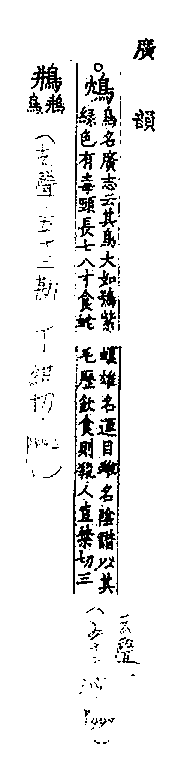 廣韻
鴆
鳥名廣志云其鳥大如鴞紫
綠色有毒頸長七八寸食蛇
蝮雄名運目雌名陰諧以其
毛歷飲食則殺人直禁切三
去聲.
(去聲.五十三勘 丁紺切.